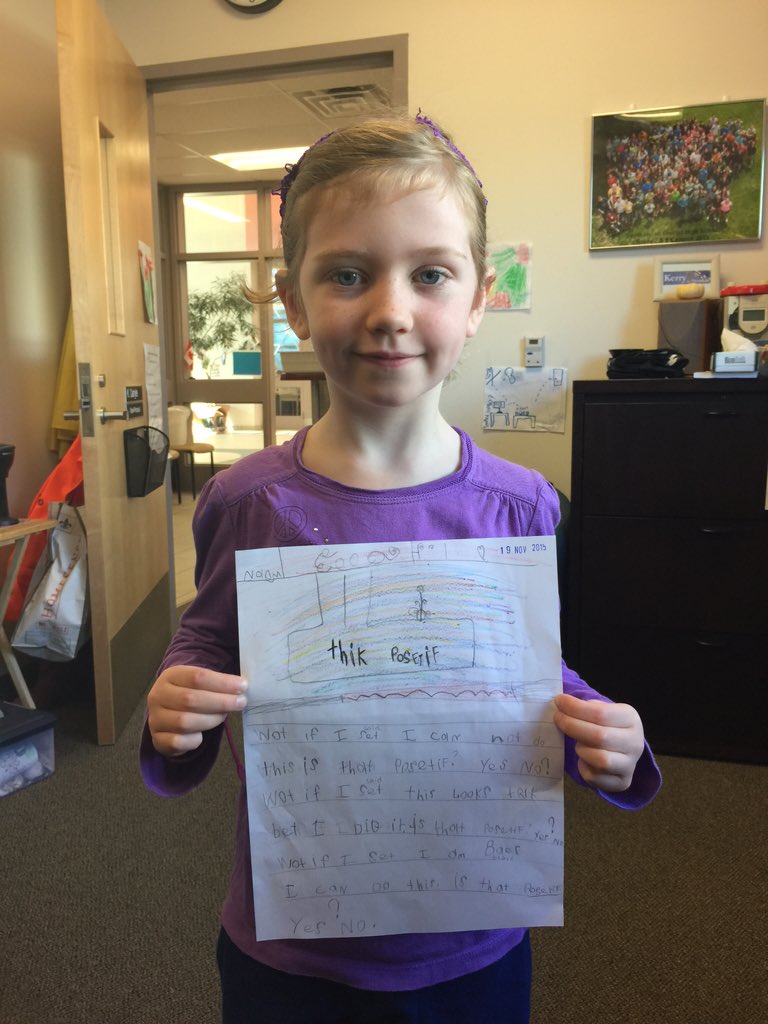 19 NOV 2015
thik PoseTiF
Wot if I set said I can not do
this is that PoseTiF? Yes No?
Wot if I set said this looks trik
bet I did it is that PoseTiF Yes? No
Wot if I set I am
I can do this. is that PoseTiF
?
Yes No.
Kerry